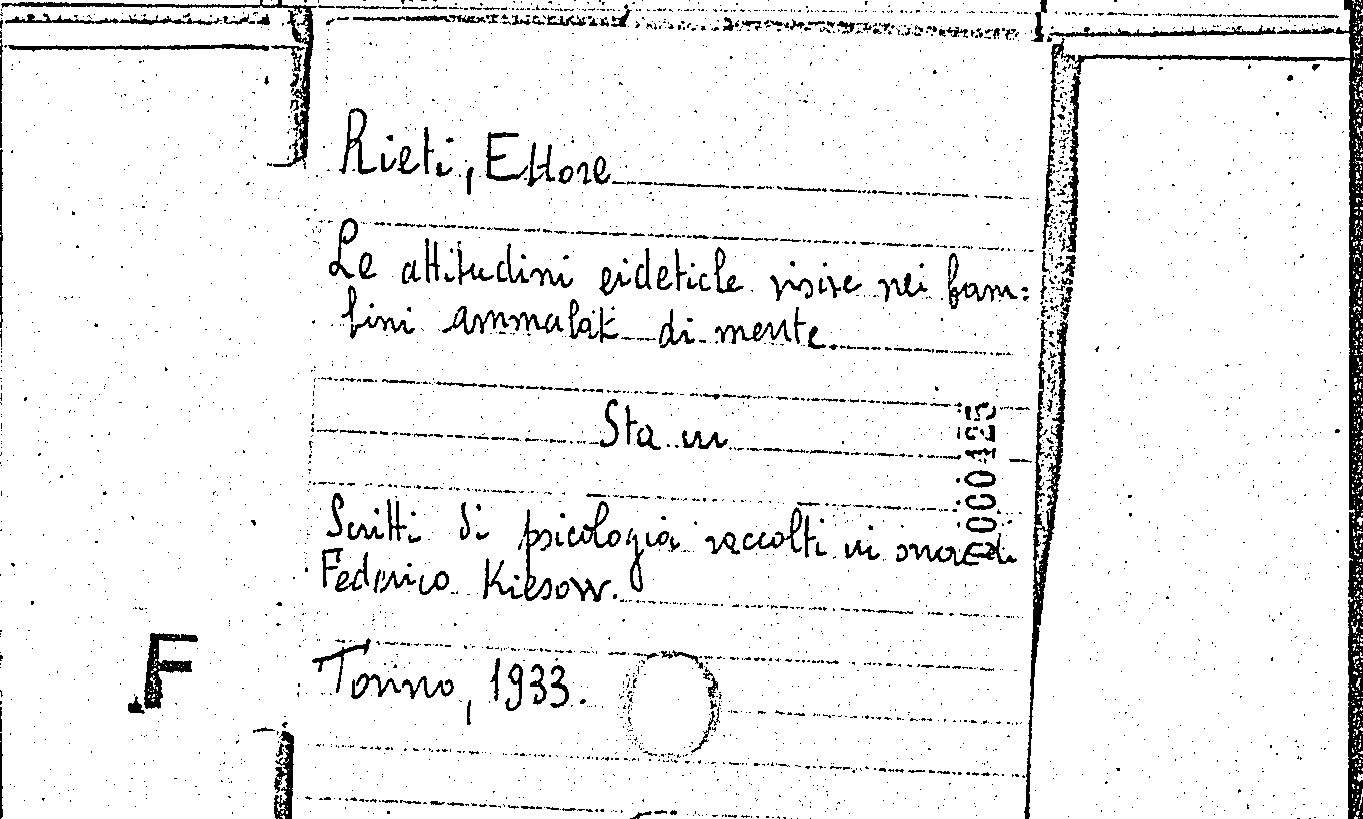 Rieti, Ettore
Le attitudini eidetiche visive nei bam=
bini ammalati di mente.
Sta in
Scritti di psicologia raccolti in onore di
Federico Kiesow.
Torino, 1933.
F
0000425